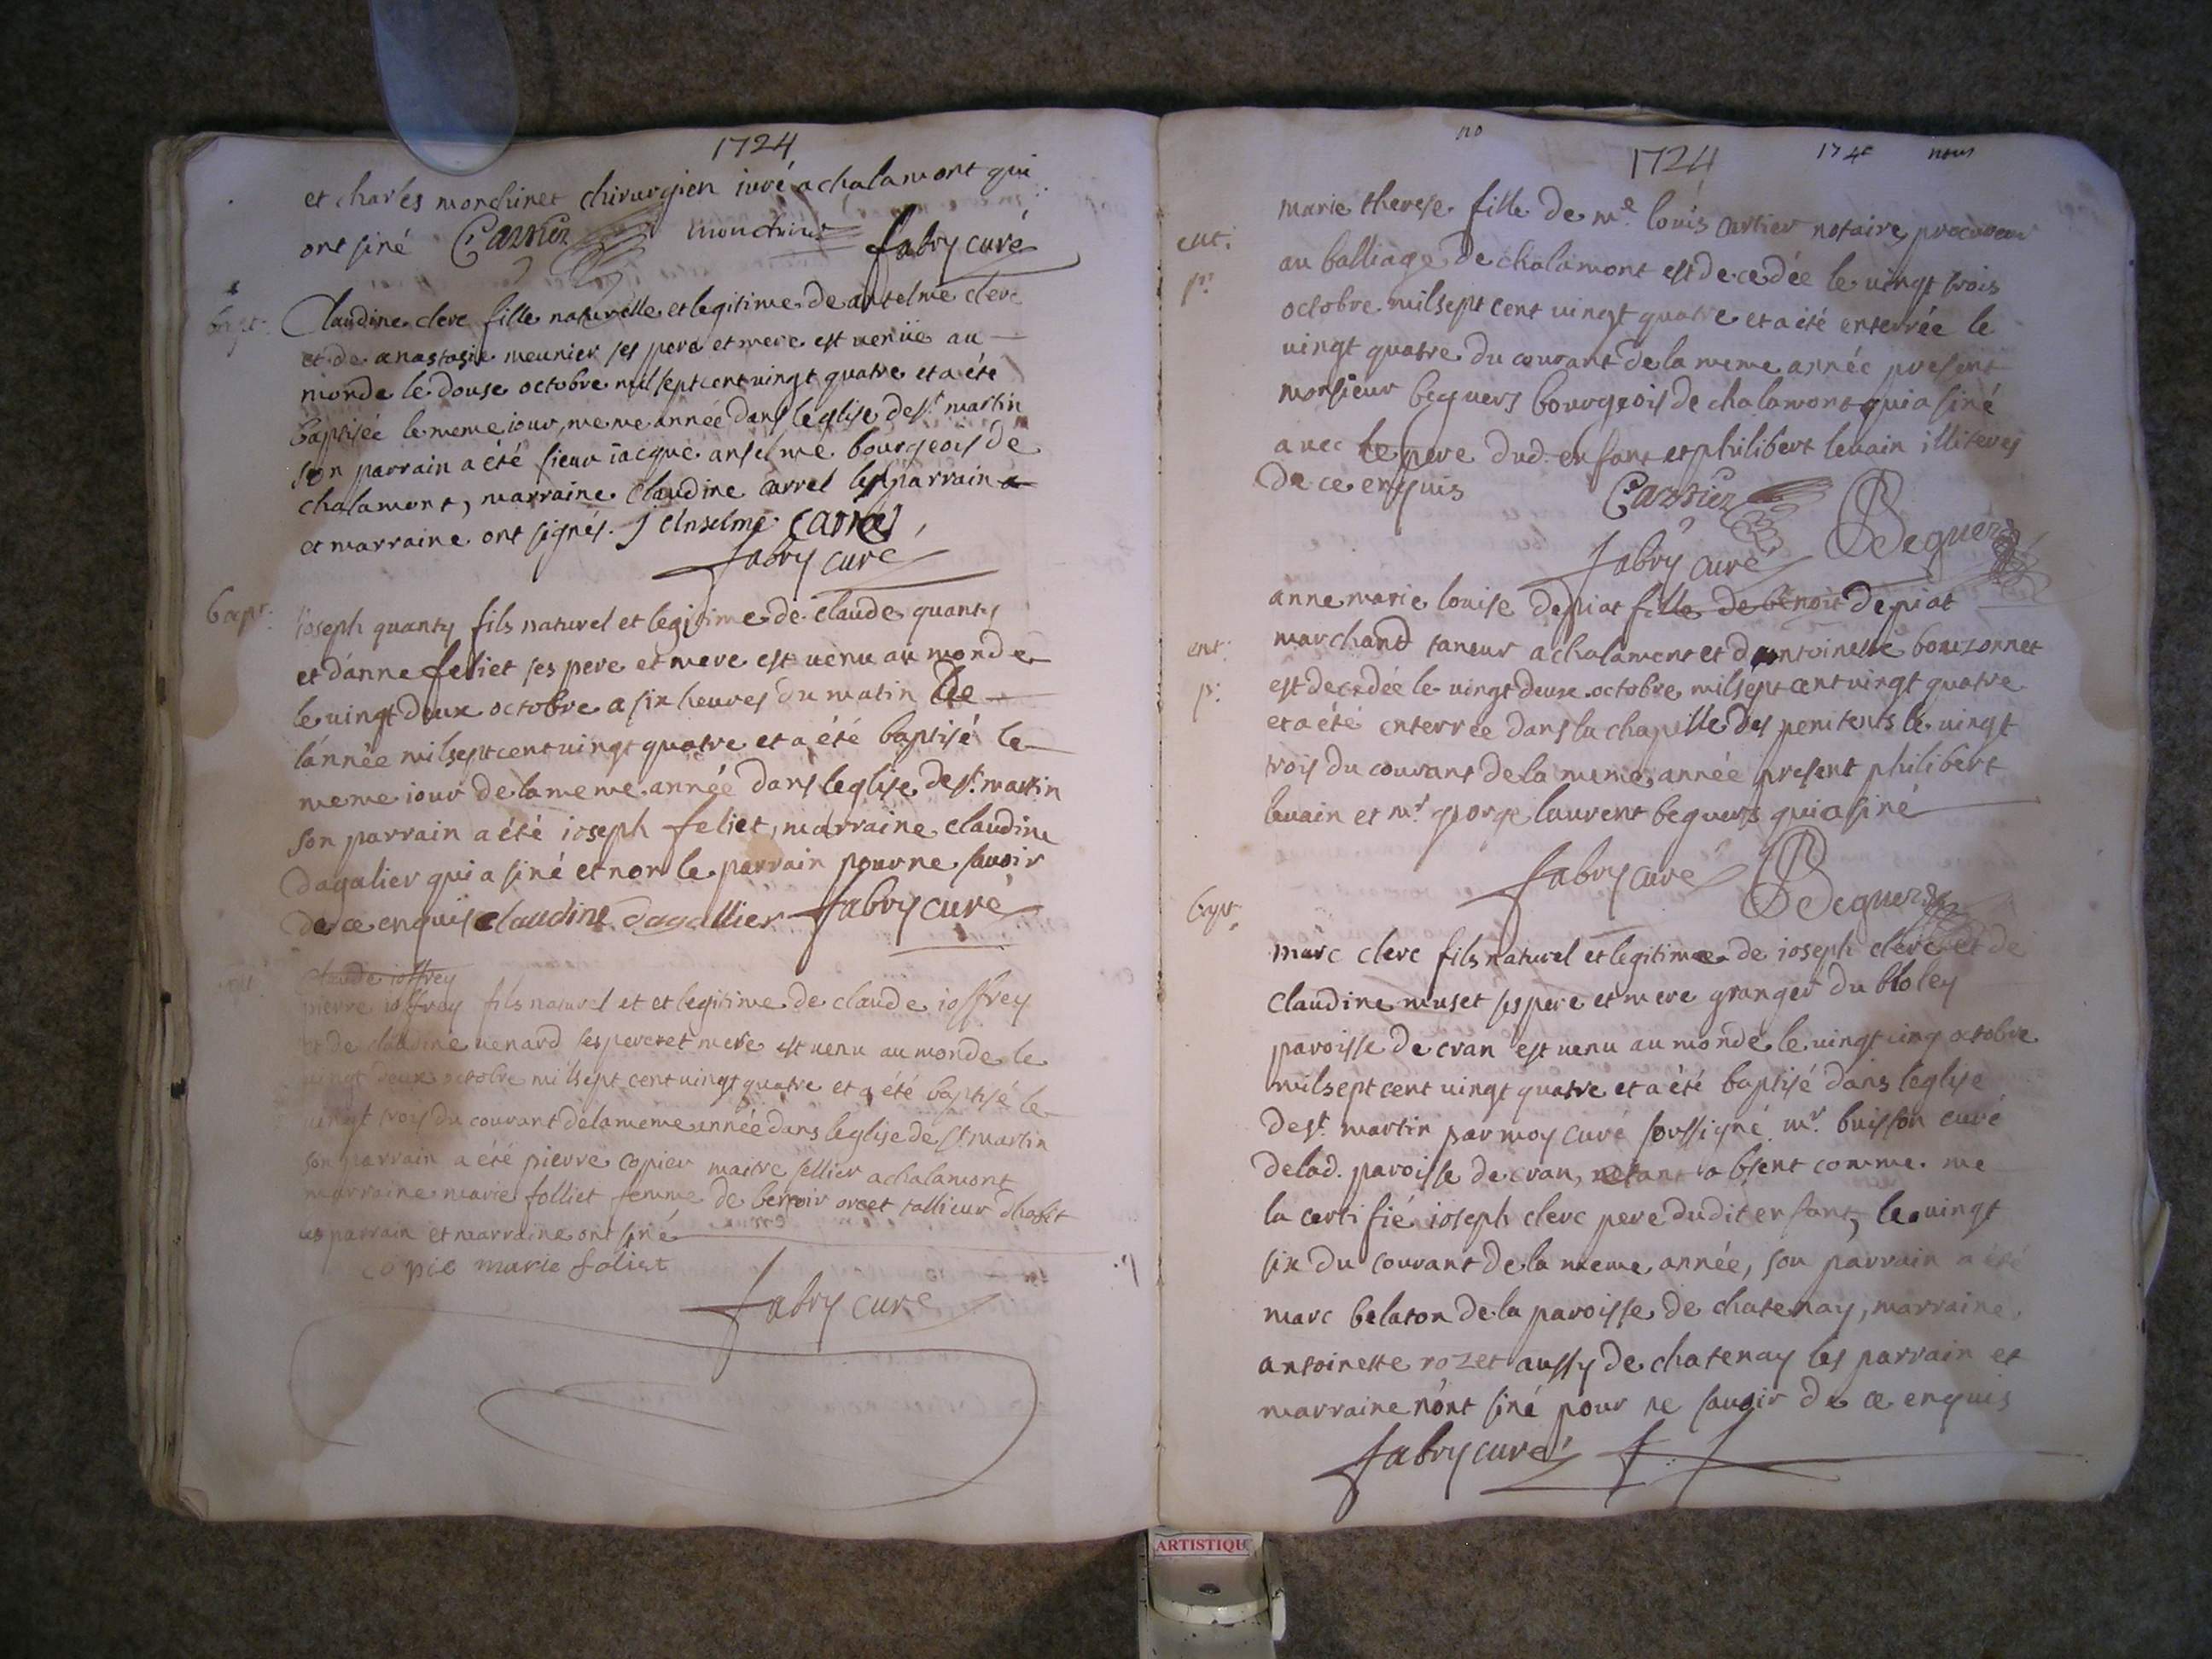 1724
et charles monchinet chirurgien iuré a chalamont qui
ont siné Carrier monchinet fabry curé
bapt.
Claudine clerc fille naturelle et legitime de antelme clerc
et de anastasie meunier ses pere et mere est venüe au
monde le douse octobre mil sept cent vingt quatre et a été
baptisée le meme iour meme année dans leglise de st martin
son parrain a été sieur iacque anselme bourgeois de
chalamont, marraine claudine carrel les parrain
et marraine ont signés. J Anselme Carrel
fabry curé
bapt.
ioseph quanty fils naturel et legitime de claude quanty
et d'anne feliet ses pere et mere est venu au monde
le vingt deux octobre a six heures du matin de
l'année mil sept cent vingt quatre et a été baptisé le
meme iour de la meme année dans leglise de st. martin
son parrain a été ioseph feliet, marraine claudine
dagalier qui a siné et non le parrain pour ne savoir
de ce enquis claudine dagallier fabry curé
claude ioffrey
pierre ioffray fils naturel et et legitime de claude ioffrey
et de claudine venard ses pere et mere est venu au monde le
vingt deux octobre mil sept cent vingt quatre et a été baptisé le
vingt trois du courant de la meme année dans leglise de st martin
son parrain a été pierre copier maitre sellier a chalamont
marraine marie folliet femme de benoir orcet tallieur dhabit
les parrain et marraine ont siné
copie marie foliet
fabry curé
no
1724
174e nous
ent.
pr.
marie therese fille de me. louis cartier notaire, procureur
au balliage de chalamont est decedée le vingt trois
octobre mil sept cent vingt quatre et a été enterrée le
vingt quatre du courant de la meme année present
monsieur beguers bourgeois de chalamont qui a siné
avec le pere dud. enfant et philibert levain illiteres
de ce enquis Carrier
fabry curé Beguers
ent.
p.
anne marie louise depiat fille de benoit depiat
marchand taneur a chalamont et d antoinette bouzonnet
est decedée le vingt deux octobre mil sept cent vingt quatre
et a été enterrée dans la chapelle des penitents le vingt
trois du courant de la meme année present philibert
levain et mr. george laurent beguers qui a siné
fabry curé Beguers
bapt.
marc clerc fils naturel et legitime de ioseph clerc et de
claudine muset ses pere et mere granger du bloley
paroisse de cran est venu au monde le vingt cinq octobre
mil sept cent vingt quatre et a été baptisé dans leglise
de st. martin par moy curé soussigné mr. buisson curé
de lad. paroisse de cran, etant absent comme me
la certifié ioseph clerc pere dudit enfant, le vingt
six du courant de la meme année, son parrain a été
marc belaton de la paroisse de chatenay, marraine
antoinette rozet aussy de chatenay les parrain et
marraine n'ont siné pour ne savoir de ce enquis
fabry curé
ARTISTIQU